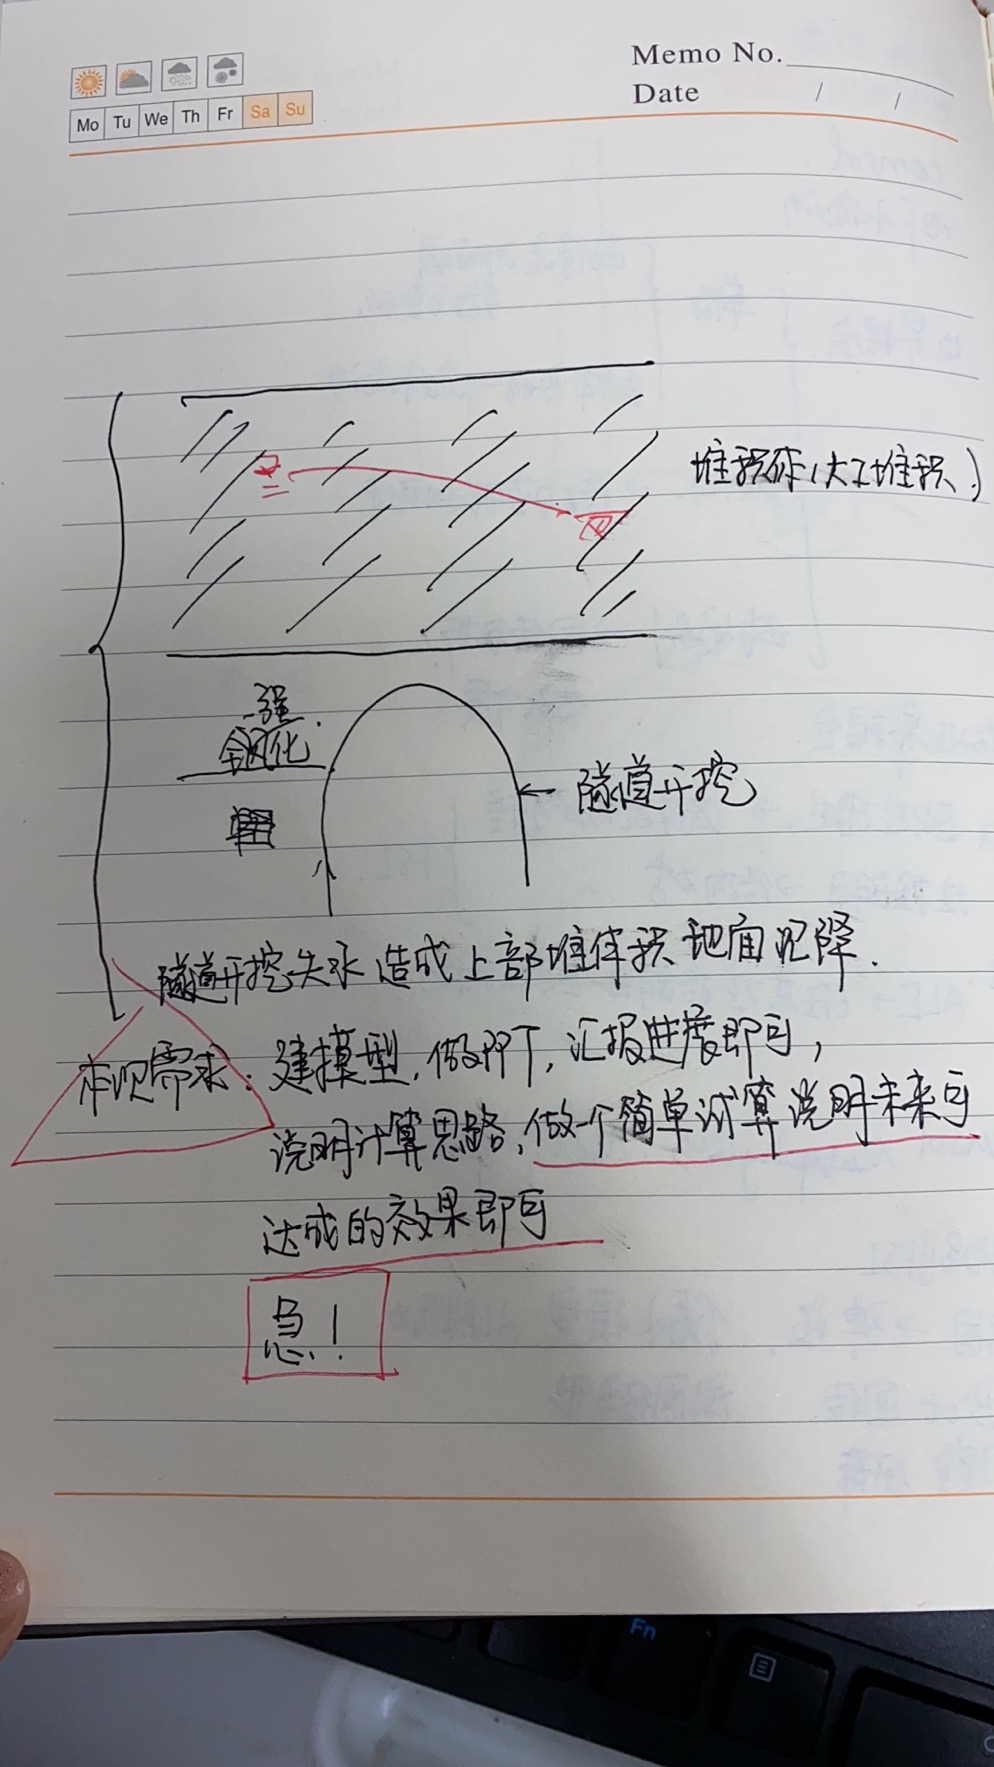 Memo No.
Mo Tu We Th Fr Sa Su
Date / /
堆积体(人工堆积)
强
风化
隧道开挖
隧道开挖失水造成上部堆体积地面沉降.
本次需求: 建模型,做PPT,汇报进度即可,
说明计算思路,做一个简单试算说明未来可
达成的效果即可
急!
Fn